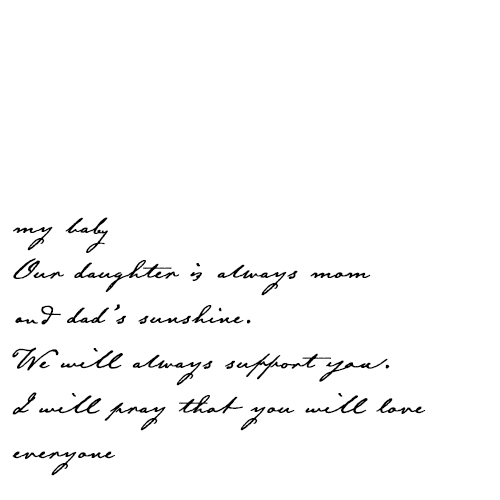 my baby
Our daughter is always mom
and dad's sunshine.
We will always support you.
I will pray that you will love
everyone